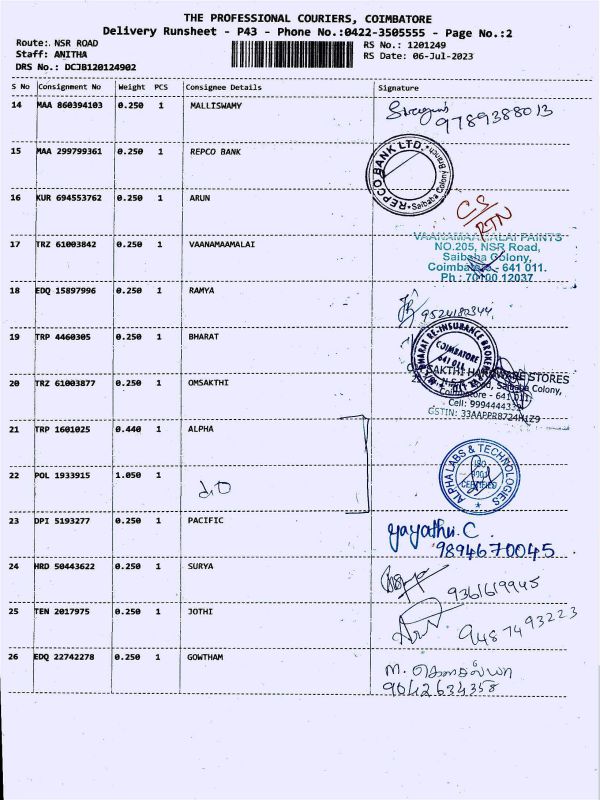 THE PROFESSIONAL COURIERS, COIMBATORE
Delivery Runsheet - P43 - Phone No.:0422-3505555 - Page No.:2
Route: NSR ROAD
RS No.: 1201249
Staff: ANITHA
RS Date: 06-Jul-2023
DRS No.: DCJB120124902
S No Consignment No Weight PCS Consignee Details Signature
14 MAA 860394103 0.250 1 MALLISWAMY
9789388013
15 MAA 299799361 0.250 1 REPCO BANK
REPCO BANK LTD. Saibaba Colony Branch
16 KUR 694553762 0.250 1 ARUN
CS/RTN
17 TRZ 61003842 0.250 1 VAANAMAAMALAI
VAANAMAAMALAI PAINTS
NO.205, NSR Road,
Saibaba Colony,
Coimbatore - 641 011.
Ph : 70100 12037
18 EDQ 15897996 0.250 1 RAMYA
9524180344
19 TRP 4460305 0.250 1 BHARAT
BHARAT RE-INSURANCE BROKERS
COIMBATORE
641 011
20 TRZ 61003877 0.250 1 OMSAKTHI
OM SAKTHI HARDWARE STORES
Road, Saibaba Colony,
Coimbatore - 641 011
Cell: 9994444339
GSTIN: 33AAPPR8724H1Z9
21 TRP 1601025 0.440 1 ALPHA
ALPHA LABS & TECHNOLOGIES
ISO
9001
CERTIFIED
22 POL 1933915 1.050 1 d/o
23 DPI 5193277 0.250 1 PACIFIC
yayathri C
9894670045
24 HRD 50443622 0.250 1 SURYA
9361619945
25 TEN 2017975 0.250 1 JOTHI
9487493223
26 EDQ 22742278 0.250 1 GOWTHAM
M. கௌசல்யா
9042634358